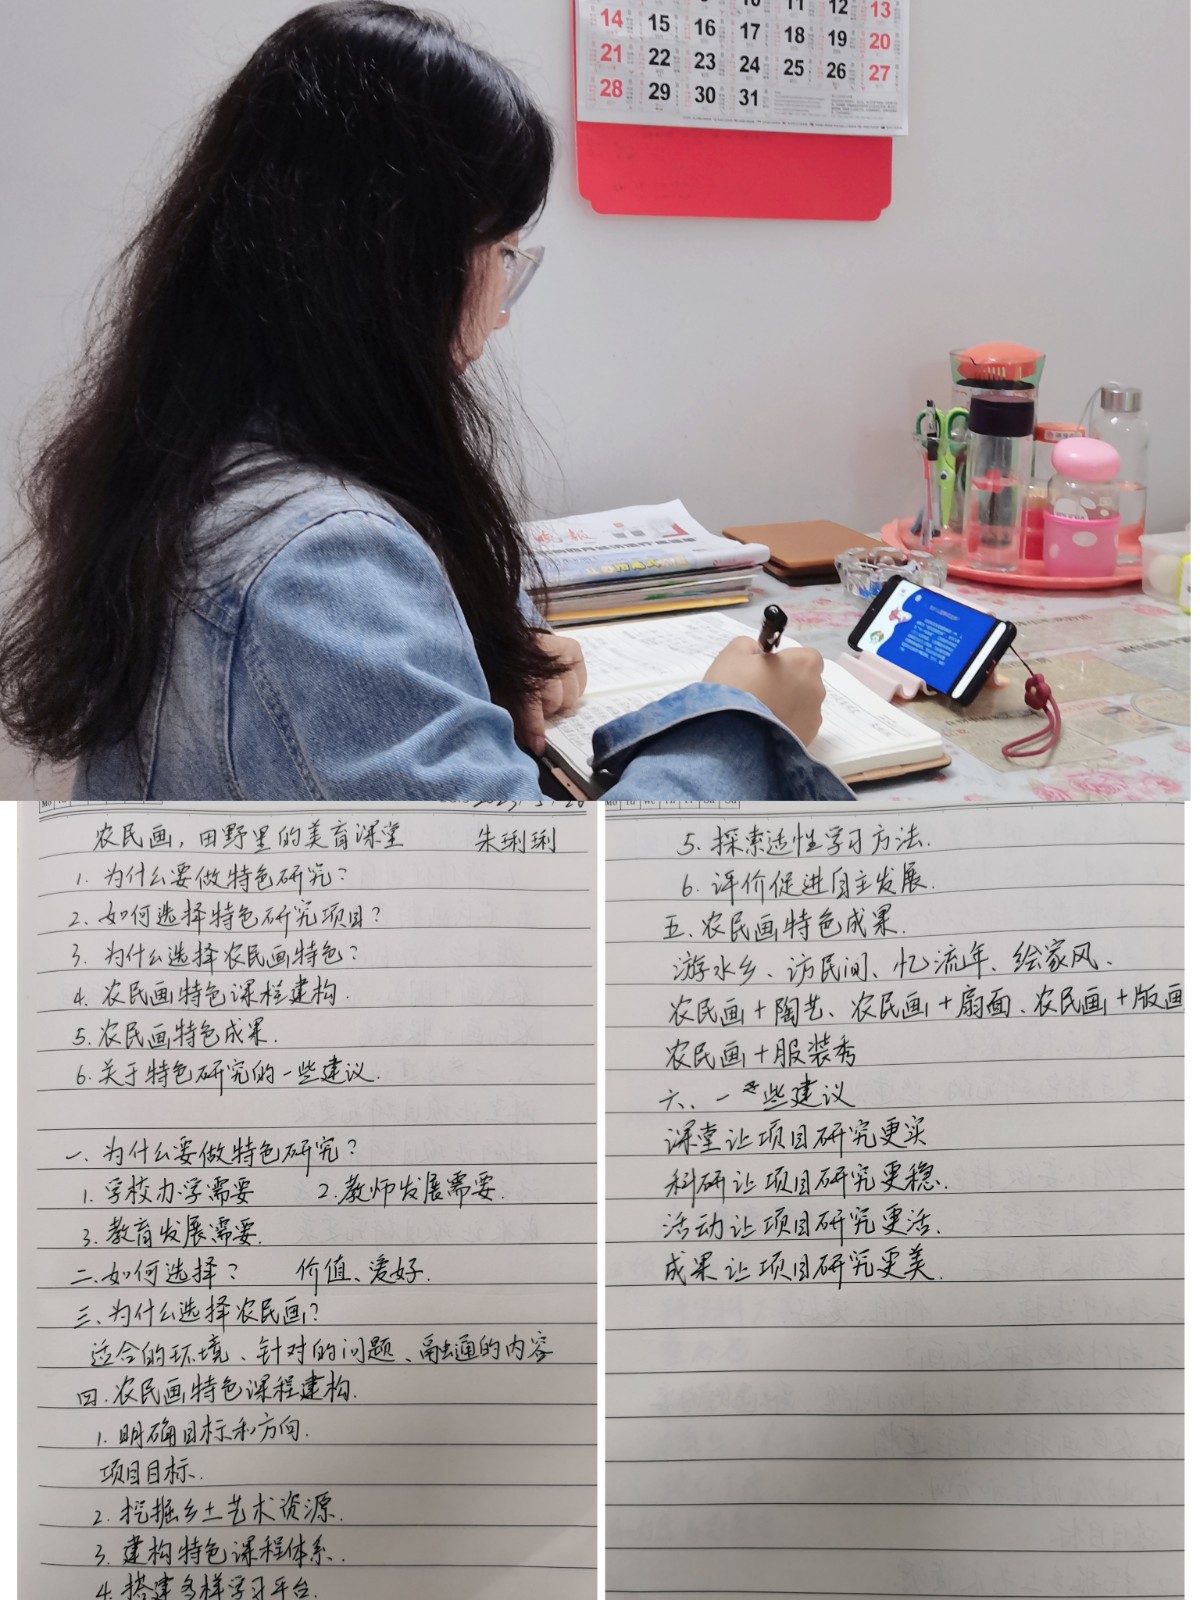 10 11 12 13
14 15 16 17 18 19 20
21 22 23 24 25 26 27
28 29 30 31
晚报
农民画，田野里的美育课堂 朱琍琍
1. 为什么要做特色研究？
2. 如何选择特色研究项目？
3. 为什么选择农民画特色？
4. 农民画特色课程建构.
5. 农民画特色成果.
6. 关于特色研究的一些建议.
一、为什么要做特色研究？
1. 学校办学需要 2. 教师发展需要.
3. 教育发展需要.
二、如何选择？ 价值、爱好.
三、为什么选择农民画？
适合的环境、针对的问题、融通的内容
四. 农民画特色课程建构.
1. 明确目标和方向.
项目目标.
2. 挖掘乡土艺术资源.
3. 建构特色课程体系.
4. 搭建多样学习平台.
Mo Tu We Th Fr Sa Su
5. 探索适性学习方法.
6. 评价促进自主发展.
五、农民画特色成果.
游水乡、访民间、忆流年、绘家风、
农民画+陶艺、农民画+扇面、农民画+版画
农民画+服装秀
六、一些建议
课堂让项目研究更实
科研让项目研究更稳.
活动让项目研究更活.
成果让项目研究更美.